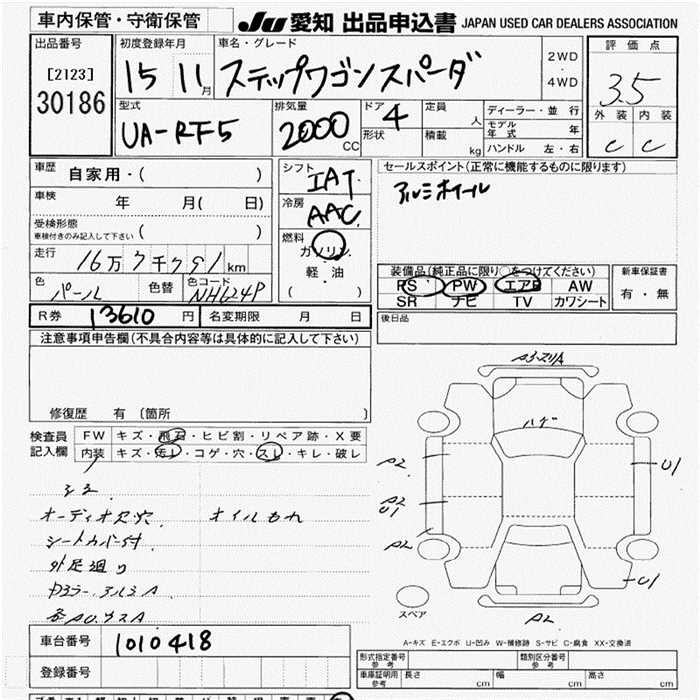 車内保管・守衛保管
JU 愛知 出品申込書 JAPAN USED CAR DEALERS ASSOCIATION
出品番号
[2123]
30186
初度登録年月
15 11月
車名・グレード
ステップワゴンスパーダ
2WD
・
4WD
評価点
3.5
外装 内装
C C
型式
UA-RF5
排気量
2000 CC
ドア 4
形状
定員 人
積載 kg
ディーラー・並行
モデル年式 年
ハンドル 左・右
車歴 自家用・( )
車検 年 月( 日)
受検形態
車検付きのみ記入して下さい ( )
走行 16万7千791km
色 パール 色替 色コード NH624P
シフト IAT
冷房 AAC
燃料
ガソリン
軽・油
( )
セールスポイント(正常に機能するものに限ります)
アルミホイール
装備品(純正品に限り○をつけてください)
PS PW エアB AW
SR ナビ TV カワシート
新車保証書
有・無
後日品
R券 13610円 名変期限 月 日
注意事項申告欄(不具合内容等は具体的に記入して下さい)
修復歴 有 (箇所 )
検査員記入欄
FW キズ・飛石・ヒビ割・リペア跡・X要
内装 キズ・汚レ・コゲ・穴・スレ・キレ・破レ
オーディオ欠穴 オイルもれ
シートカバー付
外足廻り
各AUウスA
ハゲ
A2
U1
A2
U1
A2
U1
A2
スペア
A-キズ E-エクボ U-凹み W-補修跡 S-サビ C-腐食 XX-交換済
車台番号 1010418
登録番号
形式指定番号 参考
類別区分番号 参考
車庫証明用 参考 長さ cm 幅 cm 高さ cm